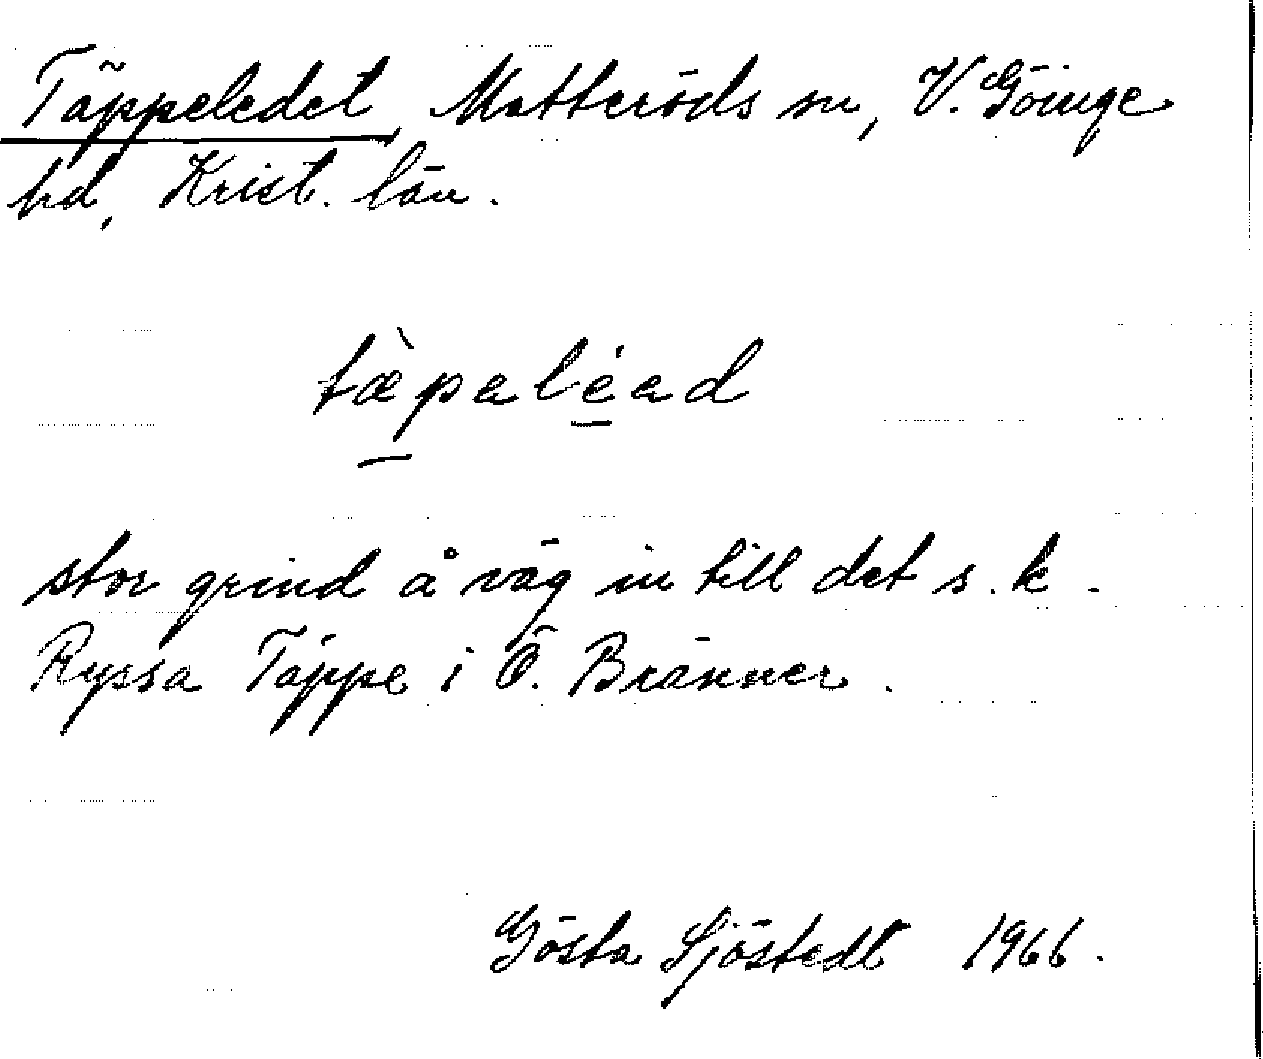 Täppeledet, Matteröds sn, V. Göinge
hd, Krist. län.
tæ̀pəléəd
stor grind å väg in till det s.k.
Ryssa Täppe i Ö. Bränner.
Gösta Sjöstedt 1966.